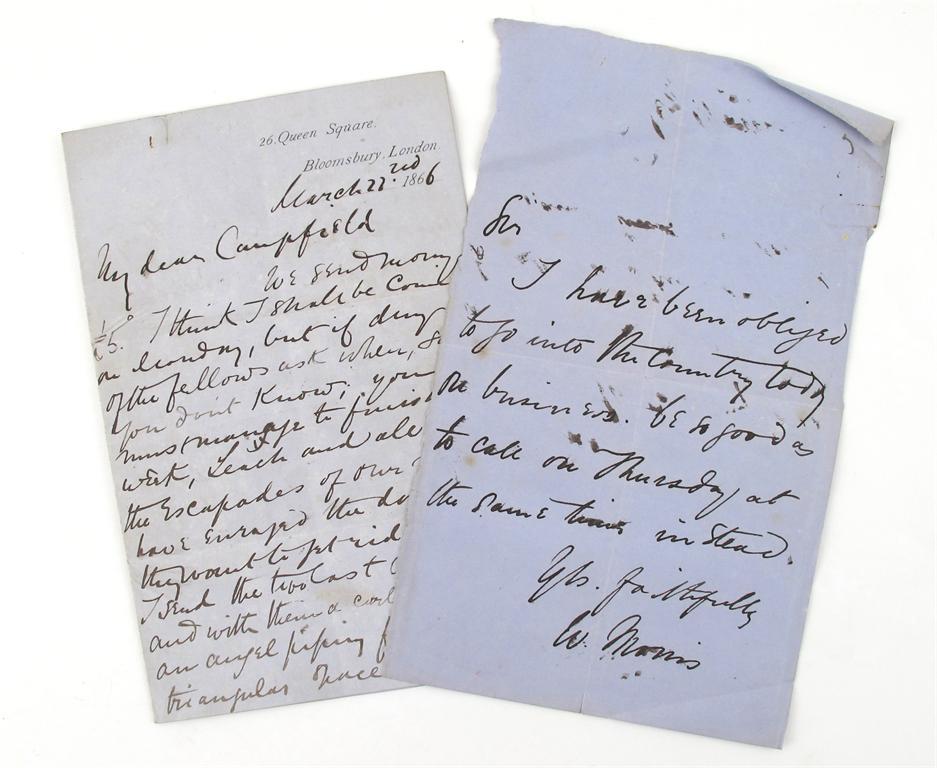 26. Queen Square.
Bloomsbury. London
March 22nd 1866
My dear Campfield
We send money
£5. I think I shall be
on Monday, but if any
of the fellows ask when, 
you dont know; you
must manage to finish
week, Leach and all
the escapades of our
have enraged the
they want to get rid
I send the two last
and with them a
an angel piping
triangular space
Sir
I have been obliged
to go into the country today
on business. be so good as
to call on Thursday at
the same time instead.
Yrs. faithfully
W. Morris